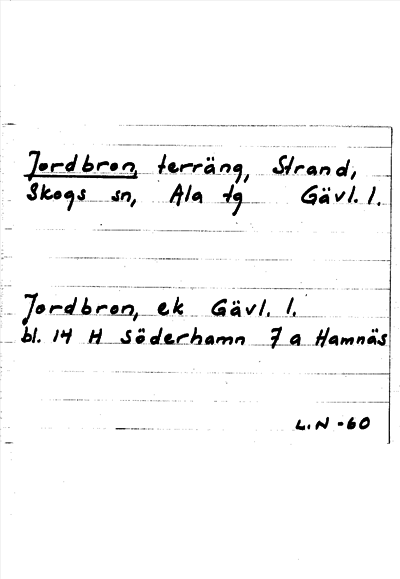 Jordbron, terräng, Strand,
Skogs sn, Ala tg Gävl. l.
Jordbron, ek Gävl. l.
bl. 14 H Söderhamn 7 a Hamnäs
L.N -60